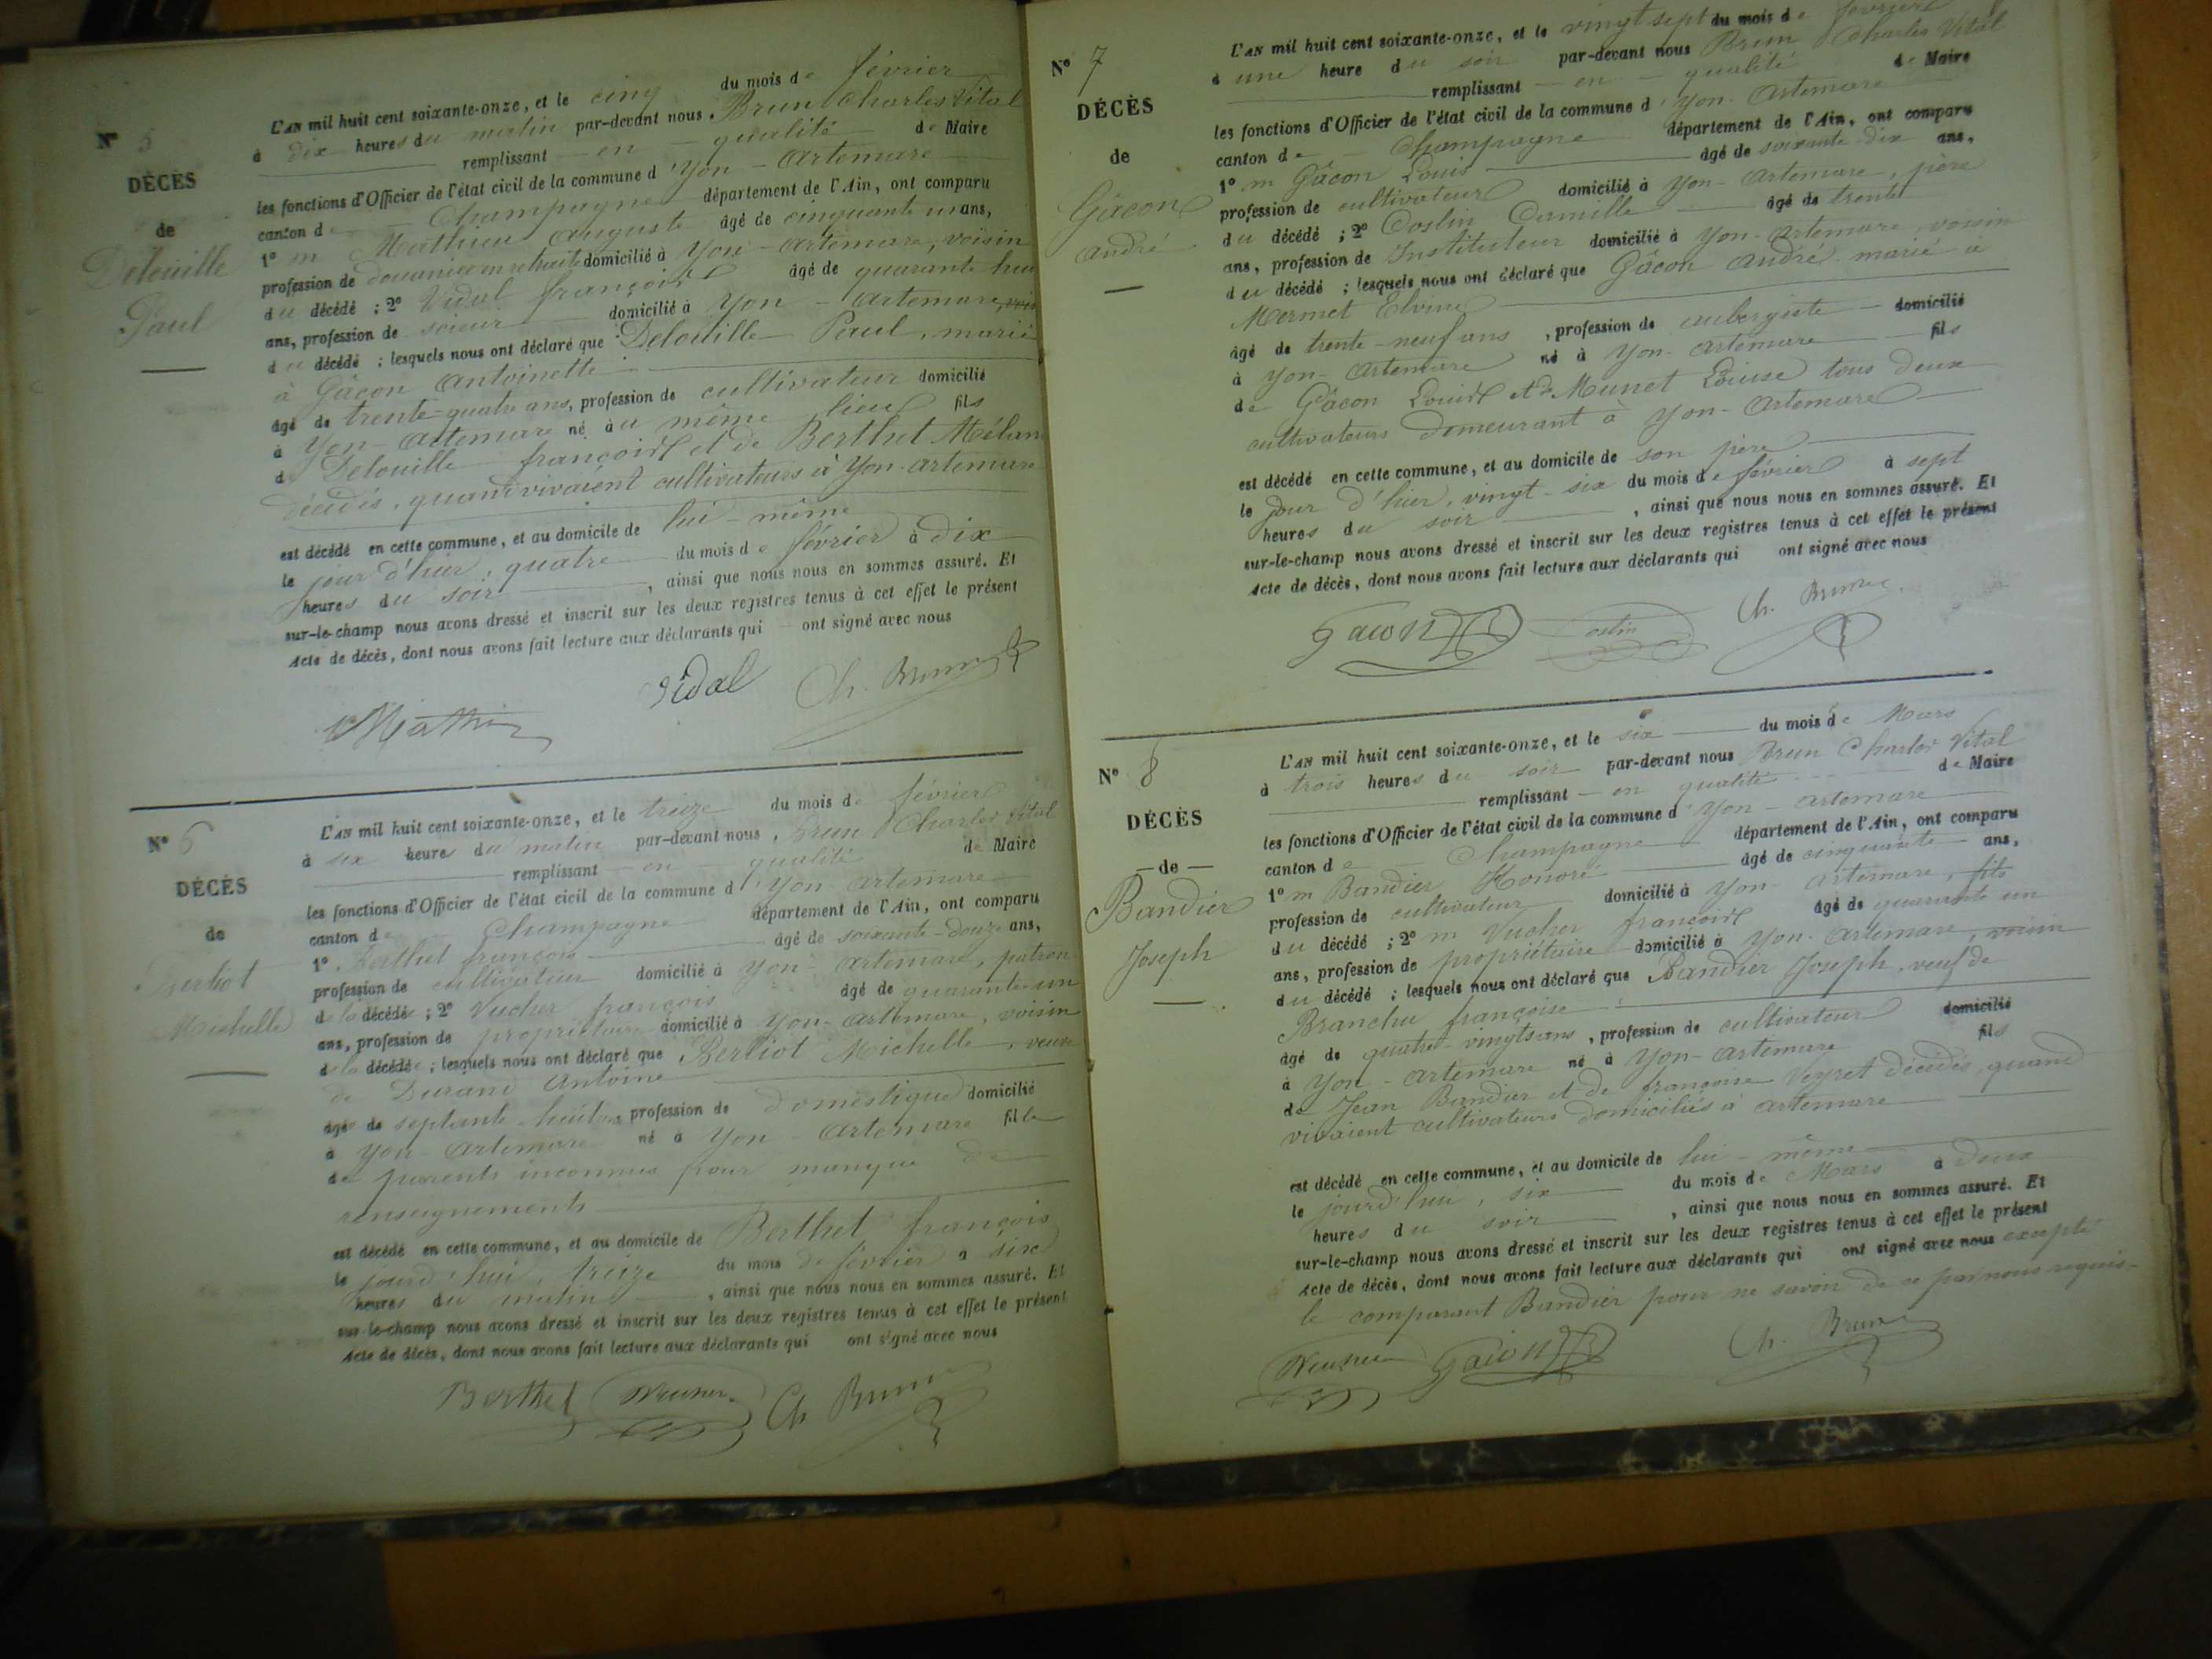 N° 5
DÉCÈS
de
Delouille
Paul
L'AN mil huit cent soixante-onze, et le cinq du mois de février
à dix heures du matin par-devant nous Brun Charles Vital
remplissant en qualité de Maire
les fonctions d'Officier de l'état civil de la commune d'Yon-Artemare
canton de Champagne département de l'Ain, ont comparu
1° m Mathieu Auguste âgé de cinquante un ans,
profession de douanier en retraite domicilié à Yon-Artemare, voisin
du décédé ; 2° Vidal françois âgé de quarante huit
ans, profession de scieur domicilié à Yon-Artemare, voisin
du décédé ; lesquels nous ont déclaré que Delouille Paul, marié
à Gâcon Antoinette
âgé de trente-quatre ans, profession de cultivateur domicilié
à Yon-Artemare né au même lieu fils
de Delouille françois et de Berthet Mélan
décédés, quand vivaient cultivateurs à Yon-Artemare
est décédé en cette commune, et au domicile de lui-même
le jour d'hier, quatre du mois de février à dix
heures du soir, ainsi que nous nous en sommes assuré. Et
sur-le-champ nous avons dressé et inscrit sur les deux registres tenus à cet effet le présent
Acte de décès, dont nous avons fait lecture aux déclarants qui ont signé avec nous
Vidal Ch. Brun
Mathieu
N° 6
DÉCÈS
de
Berliot
Michelle
L'AN mil huit cent soixante-onze, et le treize du mois de février
à six heures du matin par-devant nous, Brun Charles Vital
remplissant en qualité de Maire
les fonctions d'Officier de l'état civil de la commune d'Yon-Artemare
canton de Champagne département de l'Ain, ont comparu
1° Berthet françois âgé de soixante-douze ans,
profession de cultivateur domicilié à Yon-Artemare, patron
de la décédée ; 2° Vucher françois âgé de quarante-un
ans, profession de propriétaire domicilié à Yon-Artemare, voisin
de la décédée ; lesquels nous ont déclaré que Berliot Michelle, veuve
de Durand Antoine
âgée de septante-huit ans, profession de domestique domicilié
à Yon-Artemare né à Yon-Artemare fille
de parents inconnus pour manque de
renseignements
est décédé en cette commune, et au domicile de Berthet françois
le jourd'hui, treize du mois de février à six
heures du matin, ainsi que nous nous en sommes assuré. Et
sur-le-champ nous avons dressé et inscrit sur les deux registres tenus à cet effet le présent
Acte de décès, dont nous avons fait lecture aux déclarants qui ont signé avec nous
Berthet Vucher Ch Brun
N° 7
DÉCÈS
de
Gâcon
André
L'AN mil huit cent soixante-onze, et le vingt sept du mois de février
à une heure du soir par-devant nous Brun Charles Vital
remplissant en qualité de Maire
les fonctions d'Officier de l'état civil de la commune d'Yon-Artemare
canton de Champagne département de l'Ain, ont comparu
1° m Gâcon Louis âgé de soixante-dix ans,
profession de cultivateur domicilié à Yon-Artemare, père
du décédé ; 2° Coslin Camille âgé de trente
ans, profession de Instituteur domicilié à Yon-Artemare, voisin
du décédé ; lesquels nous ont déclaré que Gâcon André marié à
Mermet Elvine
âgé de trente-neuf ans, profession de aubergiste domicilié
à Yon-Artemare né à Yon-Artemare fils
de Gâcon Louis et de Munet Louise tous deux
cultivateurs demeurant à Yon-Artemare
est décédé en cette commune, et au domicile de son père
le jour d'hier, vingt-six du mois de février à sept
heures du soir, ainsi que nous nous en sommes assuré. Et
sur-le-champ nous avons dressé et inscrit sur les deux registres tenus à cet effet le présent
Acte de décès, dont nous avons fait lecture aux déclarants qui ont signé avec nous
Gacon Ch. Brun
N° 8
DÉCÈS
de
Bandier
Joseph
L'AN mil huit cent soixante-onze, et le six du mois de Mars
à trois heures du soir par-devant nous Brun Charles Vital
remplissant en qualité de Maire
les fonctions d'Officier de l'état civil de la commune d'Yon-Artemare
canton de Champagne département de l'Ain, ont comparu
1° m Bandier Honoré âgé de cinquante ans,
profession de cultivateur domicilié à Yon-Artemare, fils
du décédé ; 2° m Vucher françois âgé de quarante un
ans, profession de propriétaire domicilié à Yon-Artemare, voisin
du décédé ; lesquels nous ont déclaré que Bandier Joseph, veuf de
Branchu françoise
âgé de quatre-vingts ans, profession de cultivateur domicilié
à Yon-Artemare né à Yon-Artemare fils
de Jean Bandier et de françoise Veyret décédés, quand
vivaient cultivateurs domiciliés à Artemare
est décédé en cette commune, et au domicile de lui-même
le jourd'hui, six du mois de Mars à deux
heures du soir, ainsi que nous nous en sommes assuré. Et
sur-le-champ nous avons dressé et inscrit sur les deux registres tenus à cet effet le présent
Acte de décès, dont nous avons fait lecture aux déclarants qui ont signé avec nous excepté
le comparant Bandier pour ne savoir de ce par nous requis
Vucher Gacon Ch. Brun